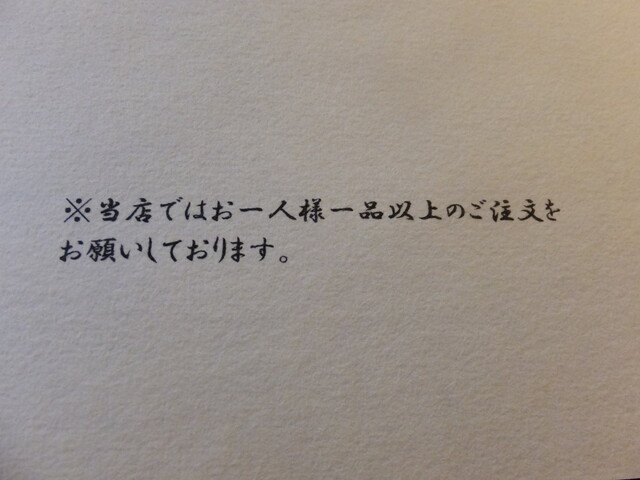 ※当店ではお一人様一品以上のご注文を
お願いしております。